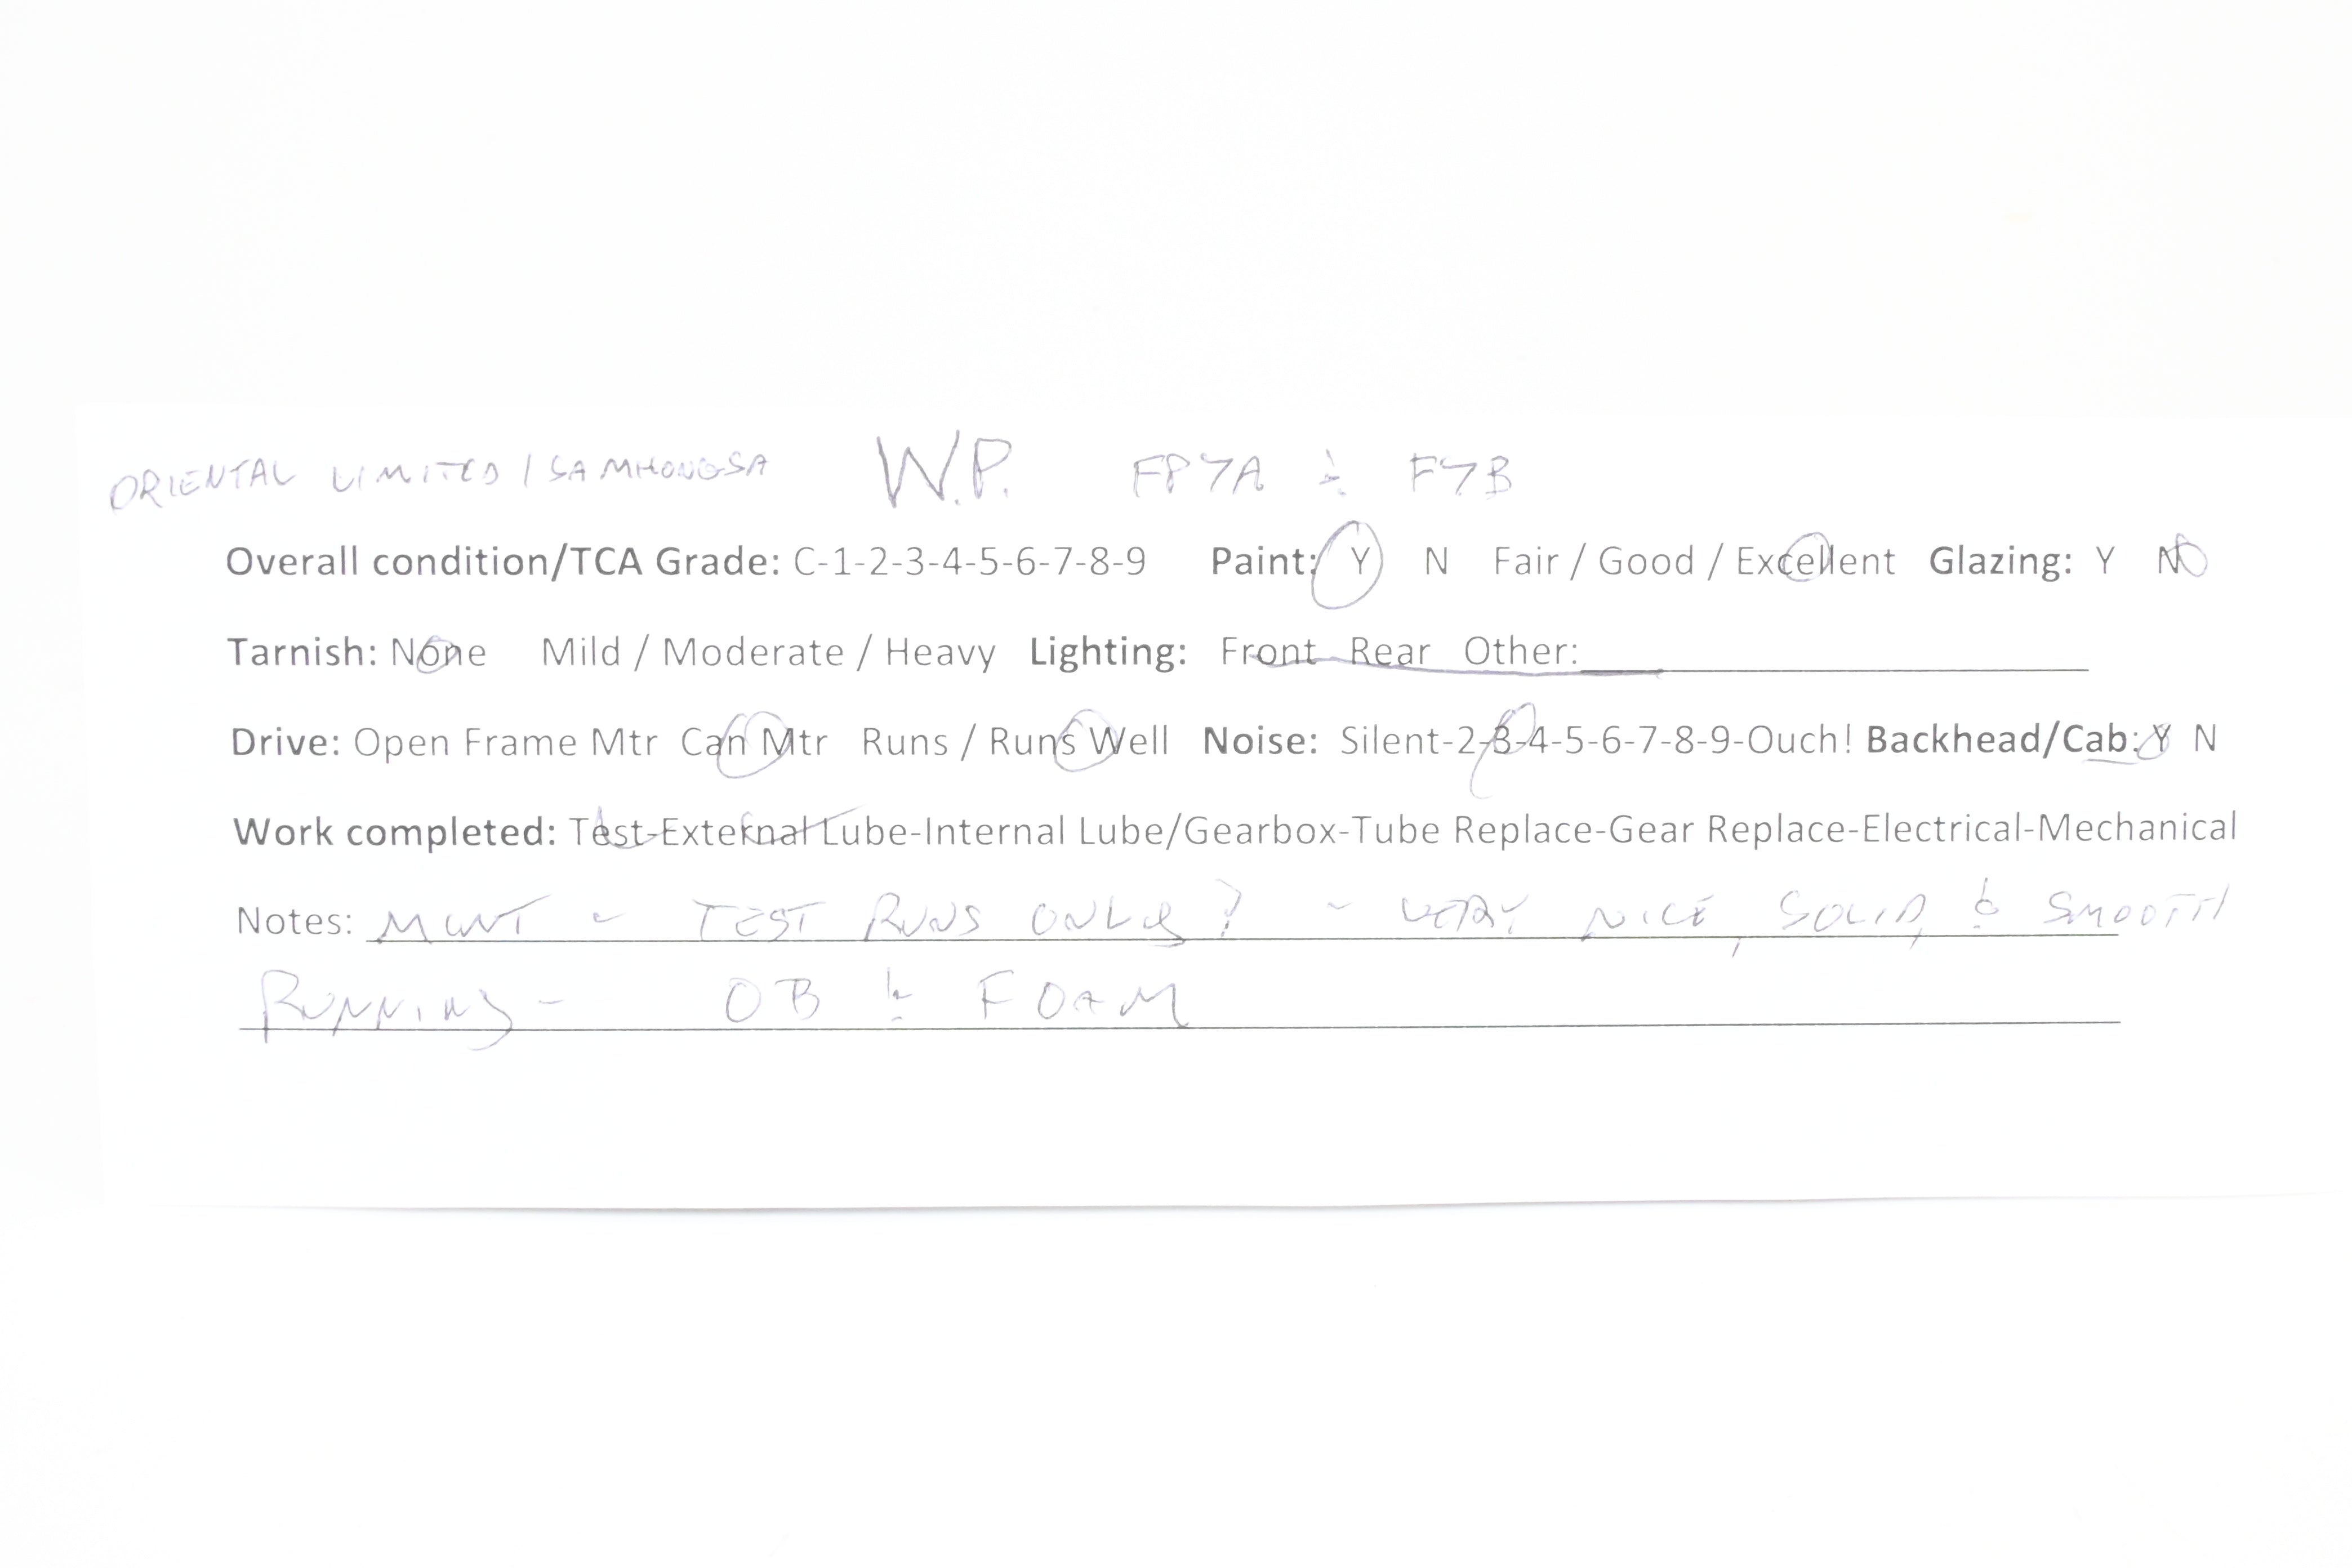 ORIENTAL LIMITED / SAMHONGSA W.P. FP7A & F7B
Overall condition/TCA Grade: C-1-2-3-4-5-6-7-8-9 Paint: Y N Fair / Good / Excellent Glazing: Y N
Tarnish: None Mild / Moderate / Heavy Lighting: Front Rear Other:
Drive: Open Frame Mtr Can Mtr Runs / Runs Well Noise: Silent-2-3-4-5-6-7-8-9-Ouch! Backhead/Cab: Y N
Work completed: Test-External Lube-Internal Lube/Gearbox-Tube Replace-Gear Replace-Electrical-Mechanical
Notes: MINT - TEST RUNS ONLY? - VERY NICE, SOLID, & SMOOTH
RUNNING - OB & FOAM